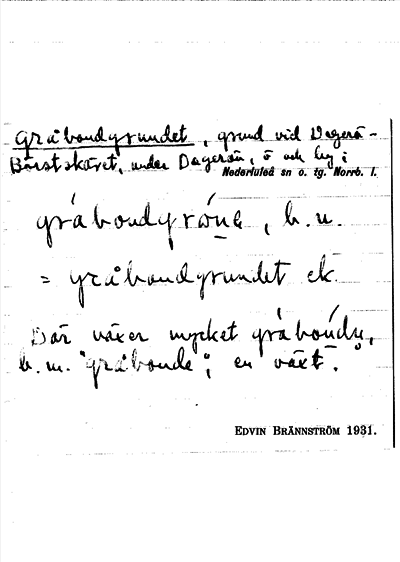 Gråbondgrundet, grund vid Dagerö-
Börstskäret, under Dagerön, ö och lby i
Nederluleå sn o. tg. Norrb. l.
gråbondgrone, b.u.
= gråbondgrundet ek.
Där växer mycket gråbondu,
b. m. "gråbonde", en växt.
EDVIN BRÄNNSTRÖM 1931.